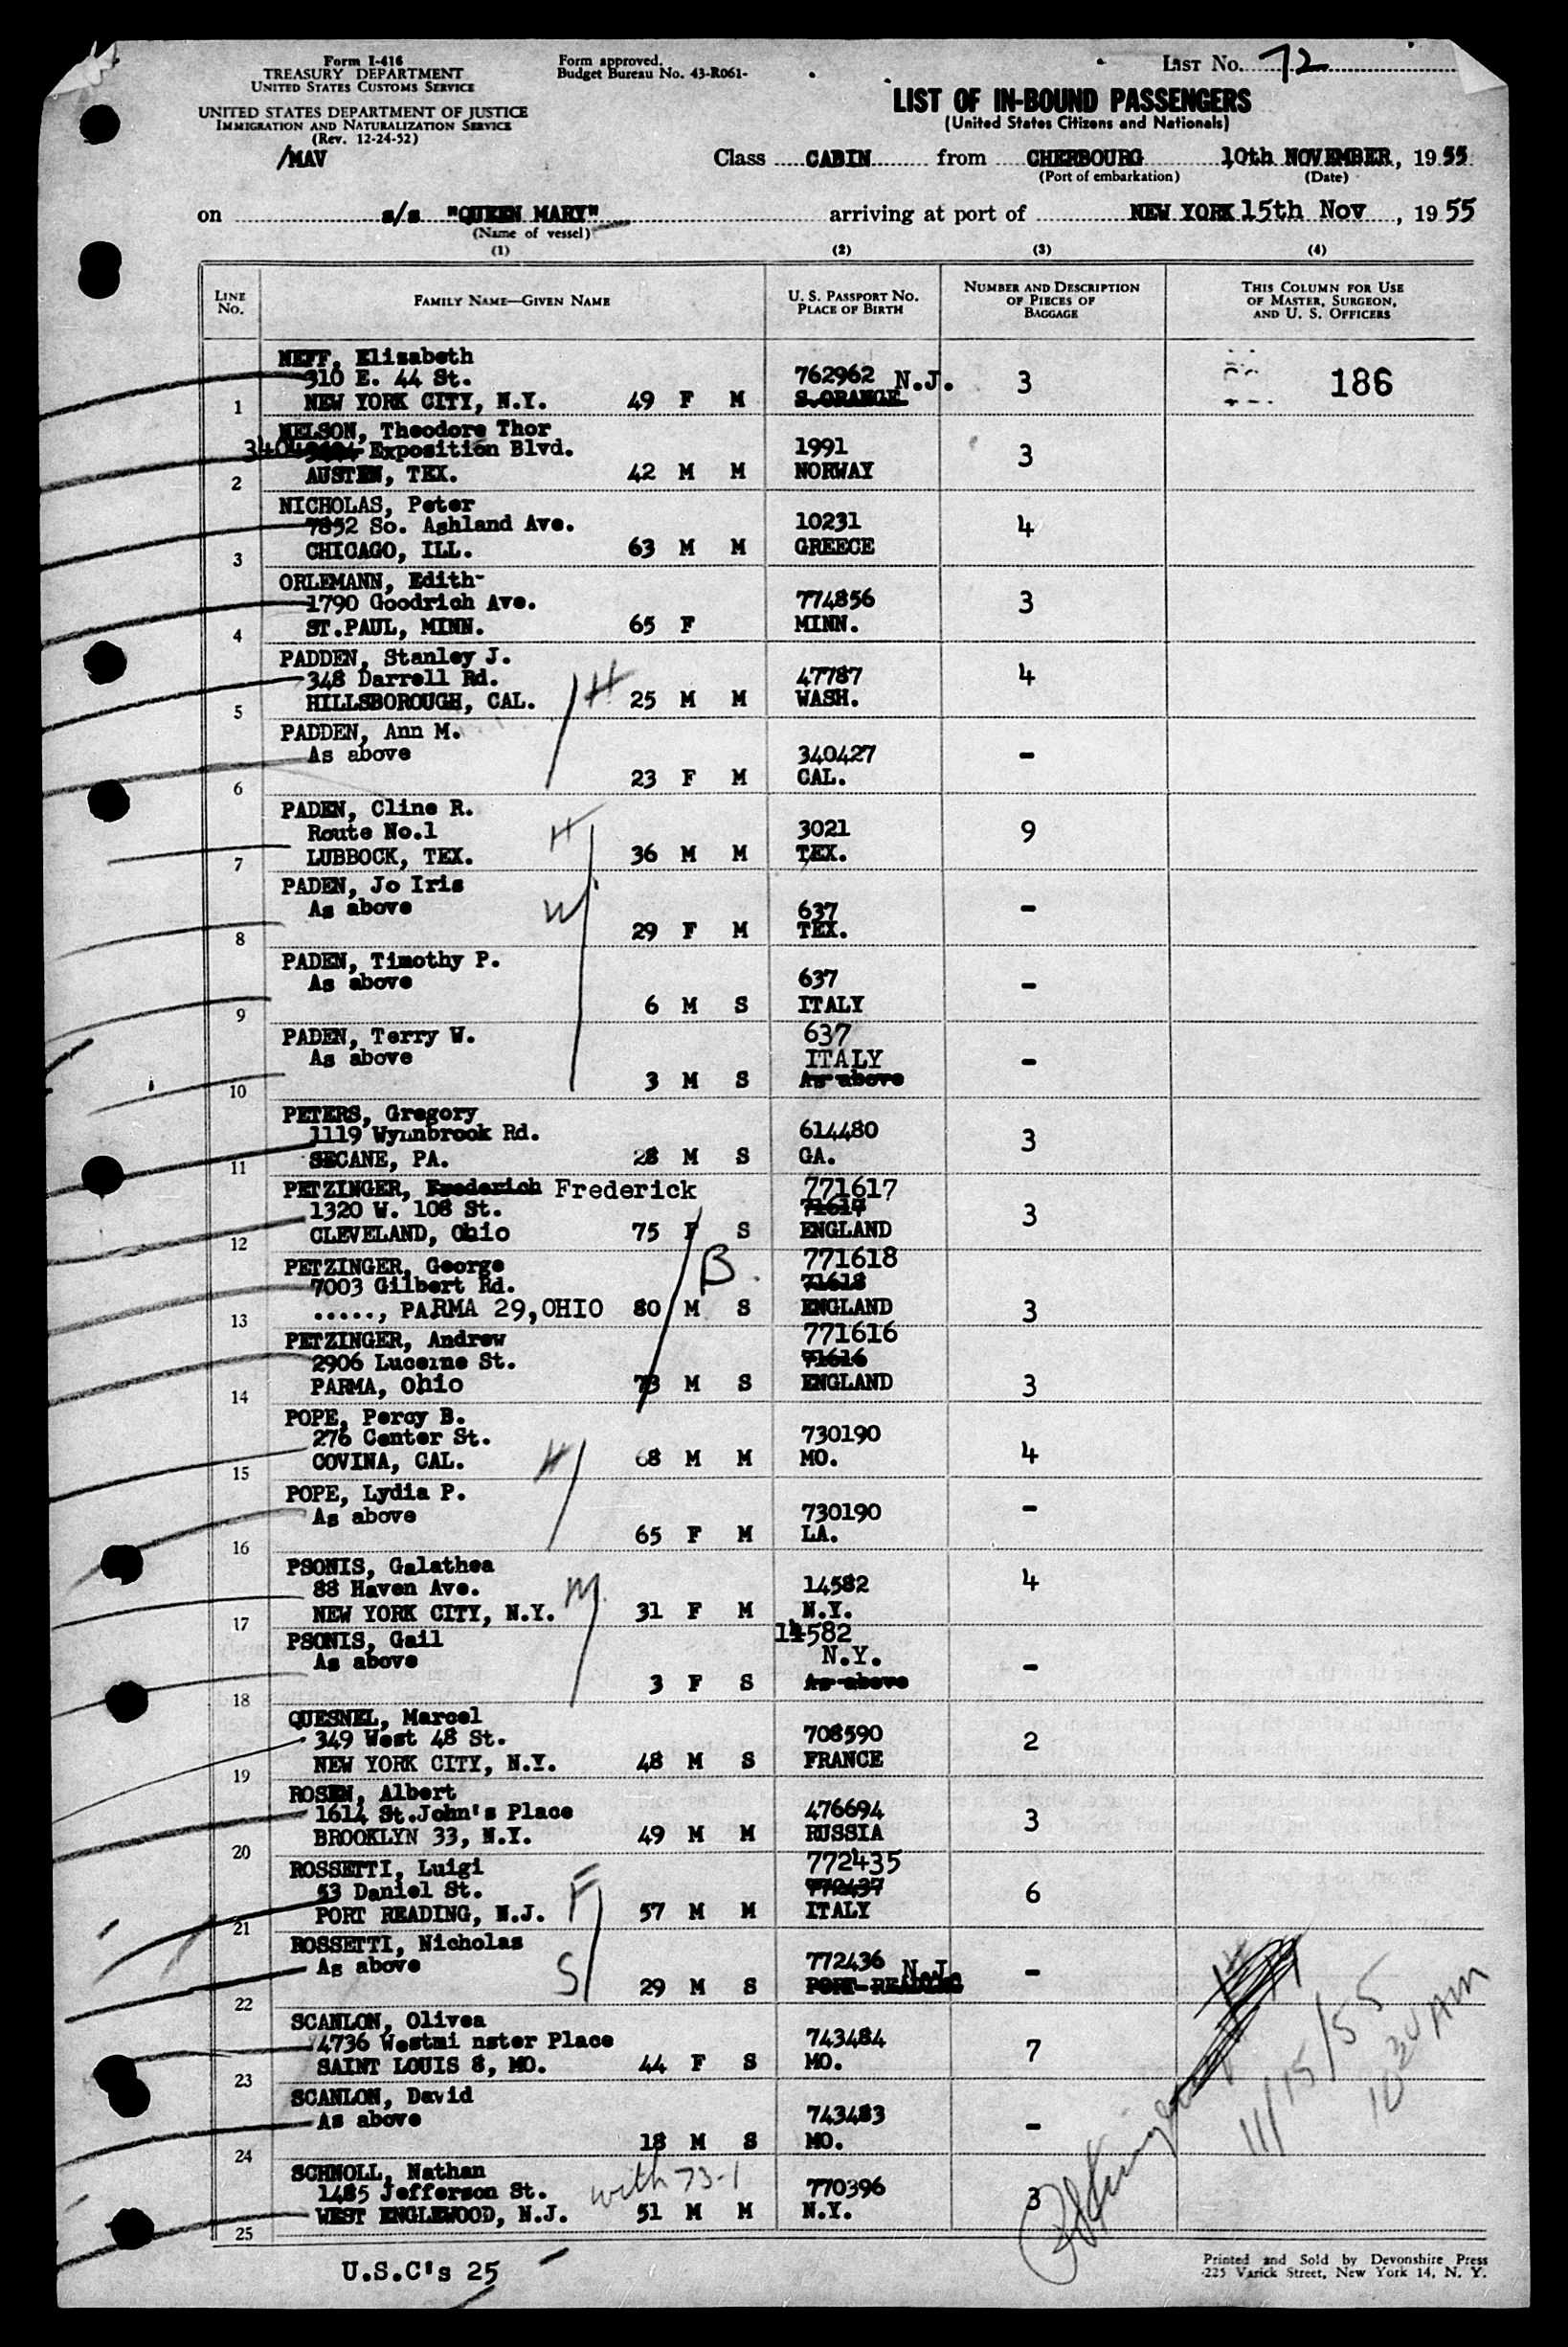 Form I-416
TREASURY DEPARTMENT
UNITED STATES CUSTOMS SERVICE
UNITED STATES DEPARTMENT OF JUSTICE
IMMIGRATION AND NATURALIZATION SERVICE
(Rev. 12-24-52)
/MAV
Form approved.
Budget Bureau No. 43-R061-
LIST No. 72
LIST OF IN-BOUND PASSENGERS
(United States Citizens and Nationals)
Class CABIN from CHERBOURG 10th NOVEMBER, 1955
(Port of embarkation) (Date)
on s/s "QUEEN MARY" arriving at port of NEW YORK 15th Nov, 1955
(Name of vessel)
(1) (2) (3) (4)
LINE No. FAMILY NAME—GIVEN NAME U. S. PASSPORT No. PLACE OF BIRTH NUMBER AND DESCRIPTION OF PIECES OF BAGGAGE THIS COLUMN FOR USE OF MASTER, SURGEON, AND U. S. OFFICERS
NEFF, Elizabeth
310 E. 44 St. 762962 N.J. 3 186
1 NEW YORK CITY, N.Y. 49 F M S.ORANGE
NELSON, Theodore Thor
3404 Exposition Blvd. 1991 3
2 AUSTEN, TEX. 42 M M NORWAY
NICHOLAS, Peter
7852 So. Ashland Ave. 10231 4
3 CHICAGO, ILL. 63 M M GREECE
ORLEMANN, Edith-
1790 Goodrich Ave. 774856 3
4 ST.PAUL, MINN. 65 F MINN.
PADDEN, Stanley J.
348 Darrell Rd. 47787 4
5 HILLSBOROUGH, CAL. H 25 M M WASH.
PADDEN, Ann M.
As above 340427 -
6 23 F M CAL.
PADEN, Cline R.
Route No.1 H 3021 9
7 LUBBOCK, TEX. 36 M M TEX.
PADEN, Jo Iris
As above W 637 -
8 29 F M TEX.
PADEN, Timothy P.
As above 637 -
9 6 M S ITALY
PADEN, Terry W. 637
As above ITALY -
10 3 M S As above
PETERS, Gregory
1119 Wynnbrook Rd. 614480 3
11 SECANE, PA. 28 M S GA.
PETZINGER, Frederich Frederick 771617
1320 W. 108 St. 71617 3
12 CLEVELAND, Ohio 75 F S ENGLAND
PETZINGER, George B 771618
7003 Gilbert Rd. 71618
13 ....., PARMA 29,OHIO 80 M S ENGLAND 3
PETZINGER, Andrew 771616
2906 Lucerne St. 71616
14 PARMA, Ohio 73 M S ENGLAND 3
POPE, Percy B.
276 Center St. 730190 4
15 COVINA, CAL. H 68 M M MO.
POPE, Lydia P.
As above 730190 -
16 65 F M LA.
PSONIS, Galathea
88 Haven Ave. M 14582 4
17 NEW YORK CITY, N.Y. 31 F M N.Y.
PSONIS, Gail 14582
As above N.Y. -
18 3 F S As above
QUESNEL, Marcel
349 West 48 St. 708590 2
19 NEW YORK CITY, N.Y. 48 M S FRANCE
ROSEN, Albert
1614 St.John's Place 476694 3
20 BROOKLYN 33, N.Y. 49 M M RUSSIA
ROSSETTI, Luigi 772435
53 Daniel St. F 772437 6
21 PORT READING, N.J. 57 M M ITALY
ROSSETTI, Nicholas
As above S 772436 N.J. -
22 29 M S PORT READING
SCANLON, Olivea
4736 Westmi nster Place 743484 7
23 SAINT LOUIS 8, MO. 44 F S MO.
SCANLON, David
As above 743483 -
24 18 M S MO.
SCHNOLL, Nathan with 73-1
1485 Jefferson St. 770396 3
25 WEST ENGLEWOOD, N.J. 51 M M N.Y.
11/15/55
10 30 AM
U.S.C's 25
Printed and Sold by Devonshire Press
225 Varick Street, New York 14, N. Y.